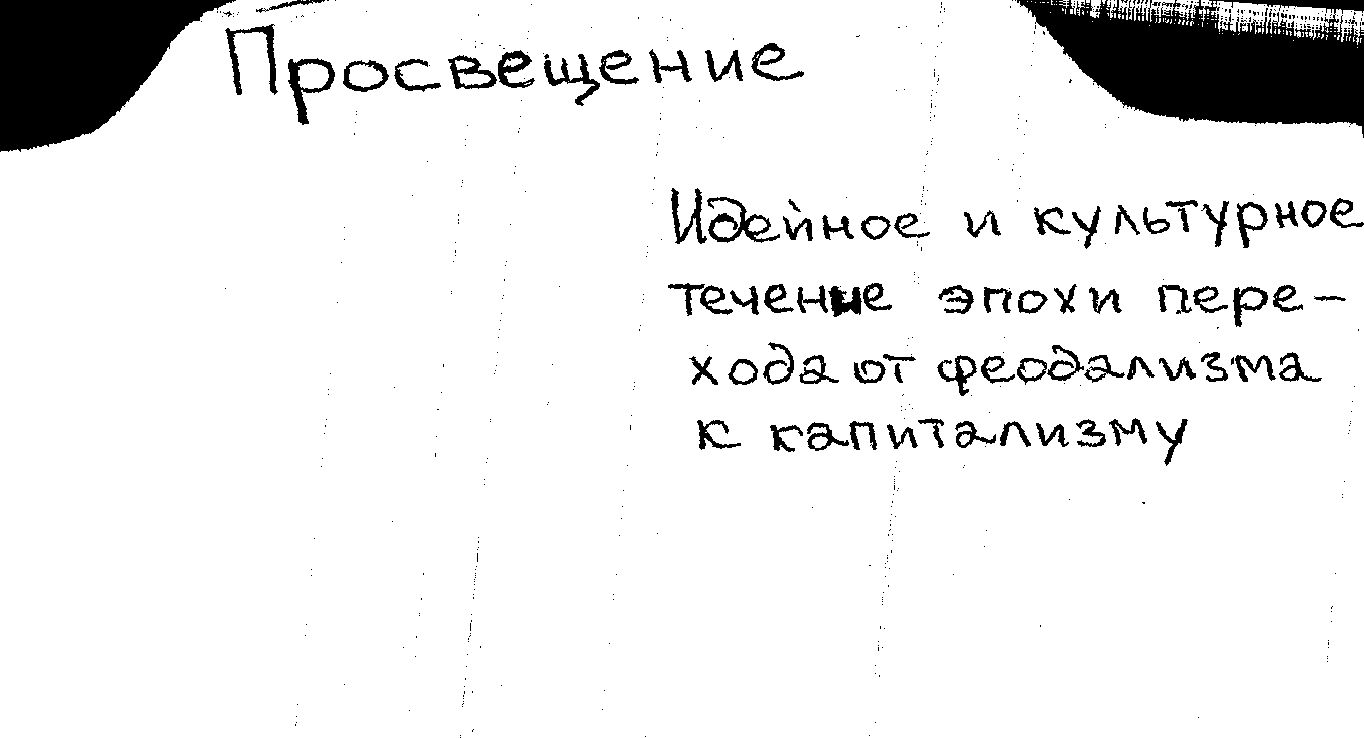 Просвещение
Идейное и культурное
течение эпохи пере-
хода от феодализма
к капитализму